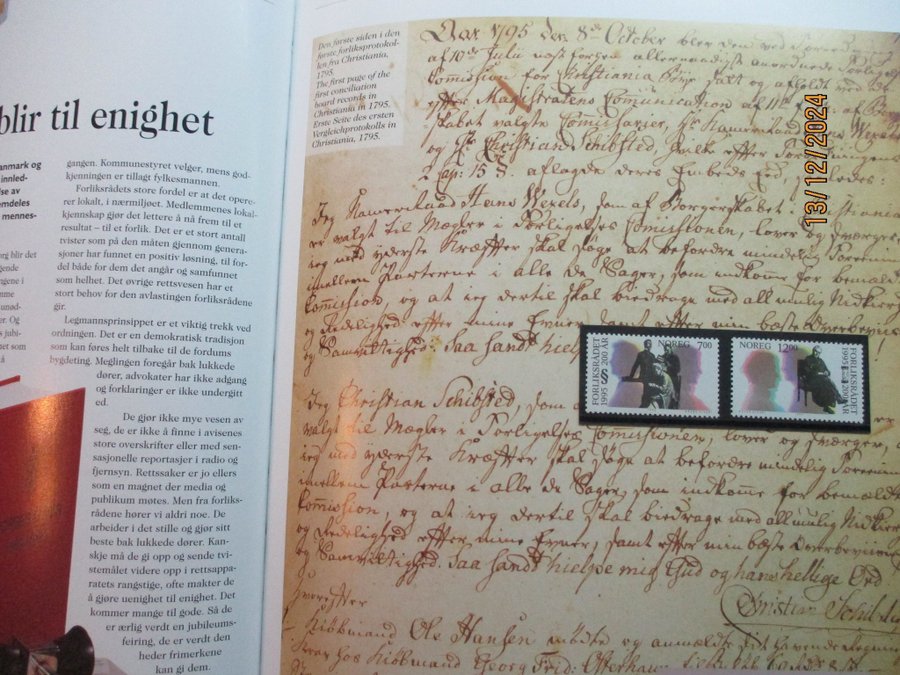 blir til enighet
anmark og
innled-
lse av
emdeles
mennes-
org blir det
gende
ngene i
mme
unød-
er. Og
s jubi-
nt
å
gangen. Kommunestyret velger, mens god-
kjenningen er tillagt fylkesmannen.
Forliksrådets store fordel er at det opere-
rer lokalt, i nærmiljøet. Medlemmenes lokal-
kjennskap gjør det lettere å nå frem til et
resultat – til et forlik. Det er et stort antall
tvister som på den måten gjennom genera-
sjoner har funnet en positiv løsning, til for-
del både for dem det angår og samfunnet
som helhet. Det øvrige rettsvesen har et
stort behov for den avlastingen forliksrådene
gir.
Legmannsprinsippet er et viktig trekk ved
ordningen. Det er en demokratisk tradisjon
som kan føres helt tilbake til de fordums
bygdeting. Meglingen foregår bak lukkede
dører, advokater har ikke adgang
og forklaringer er ikke undergitt
ed.
De gjør ikke mye vesen av
seg, de er ikke å finne i avisenes
store overskrifter eller med sen-
sasjonelle reportasjer i radio og
fjernsyn. Rettssaker er jo ellers
som en magnet der media og
publikum møtes. Men fra forliks-
rådene hører vi aldri noe. De
arbeider i det stille og gjør sitt
beste bak lukkede dører. Kan-
skje må de gi opp og sende tvi-
stemålet videre opp i rettsappa-
ratets rangstige, ofte makter de
å gjøre uenighet til enighet. Det
kommer mange til gode. Så de
er ærlig verdt en jubileums-
feiring, de er verdt den
heder frimerkene
kan gi dem.
Den første siden i den
første forliksprotokol-
len fra Christiania,
1795.
The first page of the
first conciliation
board records in
Christiania in 1795.
Erste Seite des ersten
Vergleichprotokolls in
Christiania, 1795.
1795 den 8de October blev den ved
af 10de Julii næst forhen allernaadigst anordnede
Commission for Christiania Bye sadt og afholdt
efter Magistratens Communication af 11te
skabet valgte Comissairer, Hr Kammerraad Wexels
og Hr Christian Schibsted, hvilke efter
2 Cap: 15 §. aflagde deres Embeds Eed, saaledes
Jeg Kamerraad Hans Wexels, som af Borgerskabet i Christiania
er valgt til Mægler i Forligelses Comissionen, lover og sværger
jeg med yderste Kræfter skal søge at befordre mindelig Foreening
imellem Parterne i alle de Sager, som indkomme for bemeldte
Commission, og at jeg dertil skal bidrage med all mulig Nidkierhed
og Redelighed efter mine Evner, samt efter min bæste Overbeviisning
og Samvittighed. Saa sandt hielpe
Jeg Christian Schibsted, som
valgt til Mægler i Forligelses Commissionen, lover og sværger,
jeg med yderste Kræfter skal søge at befordre mindelig Foreening
imellem Parterne i alle de Sager, som indkomme for bemeldte
Commission, og at jeg dertil skal bidrage med all mulig Nidkierhed
og Redelighed efter mine Evner, samt efter min bæste Overbeviisning
og Samvittighed. Saa sandt hielpe mig Gud og hans hellige Ord
Christian Schibsted
Hvorefter
Kiøbmand Ole Hansen mødte og anmældte
Kiøbmand Georg Frid:
FORLIKSRÅDET
1995 § 200 ÅR
NOREG 7.00
NOREG 12.00
FORLIKSRÅDET
1995 200 ÅR
13/12/2024